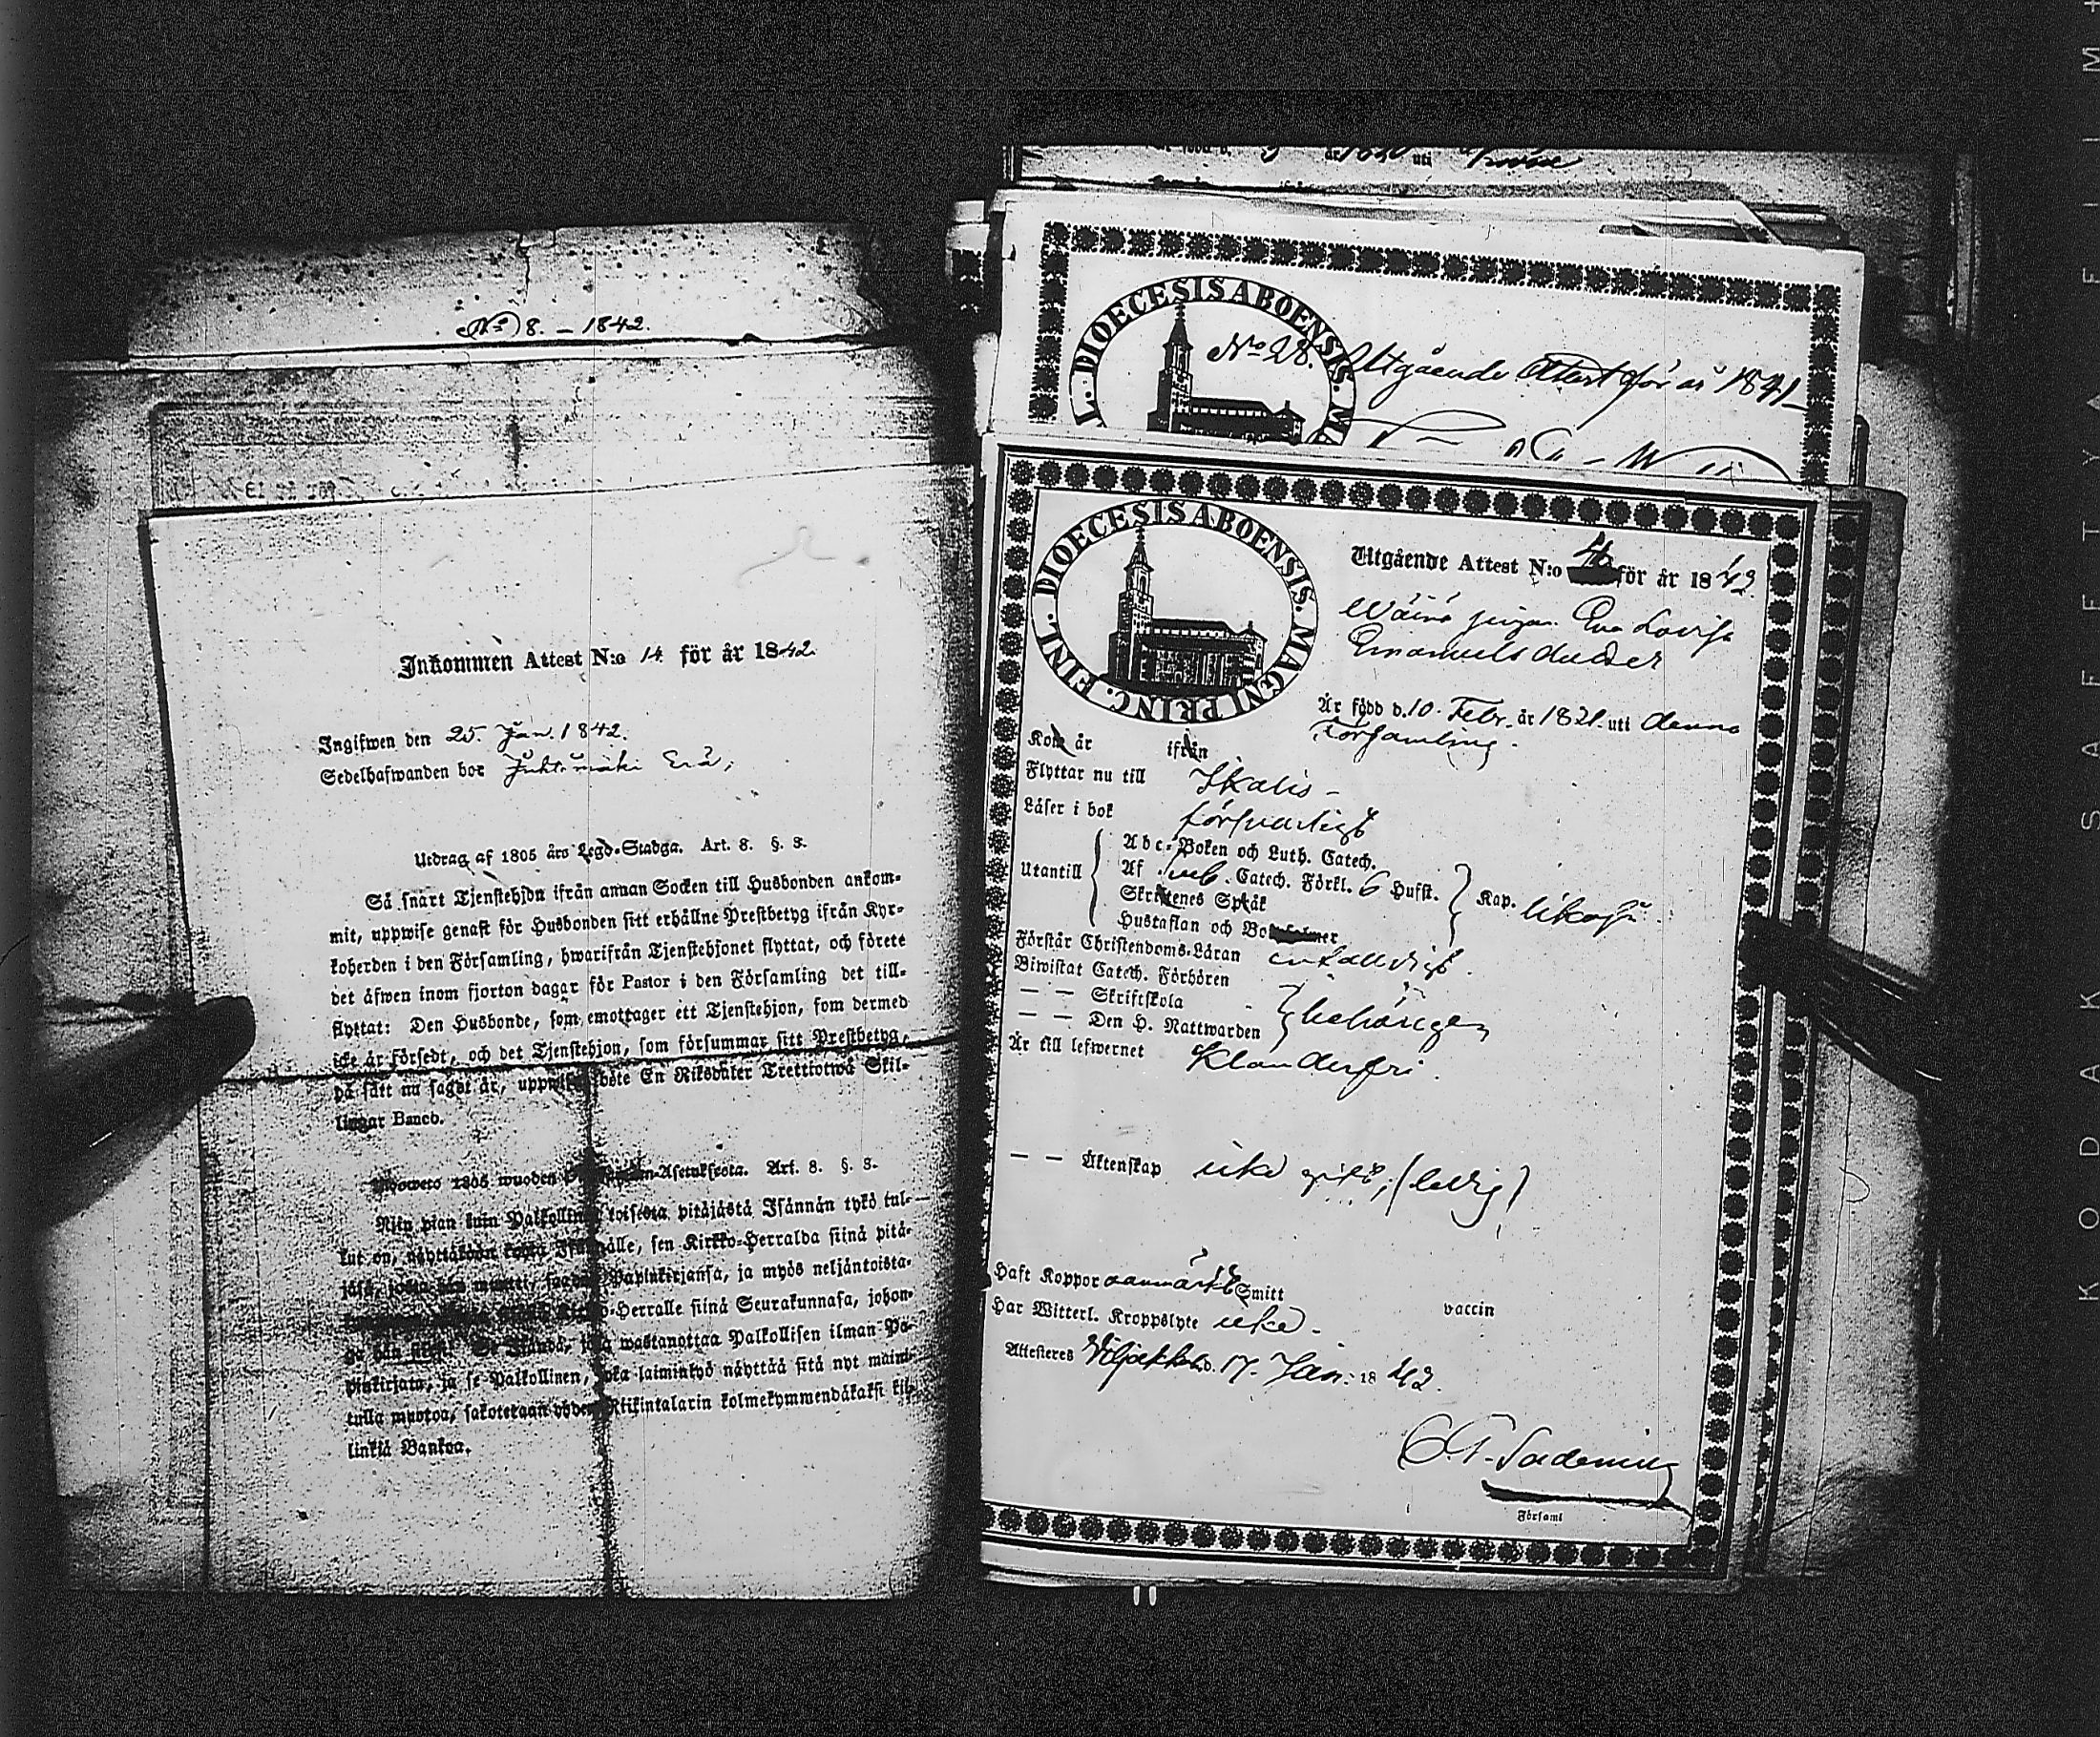 No 8. – 1842.
Inkommen Attest N:o 14 för år 1842.
Ingifwen den 25 Jan. 1842.
Sedelhafwanden bor
Utdrag af 1805 års Legd-Stadga. Art. 8. §. 3.
Så snart Tjenstehjon ifrån annan Socken till Husbonden ankom-
mit, uppwise genast för Husbonden sitt erhållne Prestbetyg ifrån Kyr-
koherden i den Församling, hwarifrån Tjenstehjonet flyttat, och förete
det äfwen inom fjorton dagar för Pastor i den Församling det till-
flyttat: Den Husbonde, som emottager ett Tjenstehjon, som dermed
icke är försedt, och det Tjenstehjon, som försummar sitt Prestbetyg,
på sätt nu sagdt är, uppwisa, böte En Riksdaler Trettiotwå Skil-
lingar Banco.
1805 wuoden Asetuksesta. Art. 8. §. 3.
Niin pian kuin Palkollinen toisesta pitäjästä Isännän tykö tul-
lut on, näyttäkään Isännälle, sen Kirkko-Herralda siinä pitä-
jäsä, josta hän muutti, Papinkirjansa, ja myös neljäntoista-
Herralle siinä Seurakunnasa, johon-
ga hän Se Isändä, joka wastanottaa Palkollisen ilman Pa-
pinkirjata, ja se Palkollinen, joka laimintyö näyttää sitä nyt maini-
tulla muotoa, sakotetaan yhden Riikintalarin kolmekymmendäkaksi kil-
linkiä Bankoa.
är 1820 uti
DIOECESIS ABOENSIS. MA
No 28. Utgående Attest för år 1841
DIOECESIS ABOENSIS. MAGNI PRINC. FINL.
Utgående Attest N:o för år 1842.
pigan Eva Lovisa
Emanuelsdotter
Är född d. 10. Febr. år 1821. uti denna
Församling.
Kom år ifrån
Flyttar nu till Ikalis –
Läser i bok försvarligt
Utantill
Abc-Boken och Luth. Catech.
Af Sveb. Catech. Förkl. 6 Hufst.
Skriftenes Språk
Hustaflan och
Kap. likaså
Förstår Christendoms-Läran enfaldigt.
Biwistat Catech. Förhören
– – Skriftskola
– – Den H. Nattwarden
behörigen
Är till lefwernet Klanderfri.
– – Äktenskap icke gift, (ledig)
Haft Koppor oanmärkt Smitt vaccin
Har Witterl. Kroppslyte icke.
Attesteres Viljakkala d. 17. Jan. 1842.
Församl
KODAK SAFETY FILM +